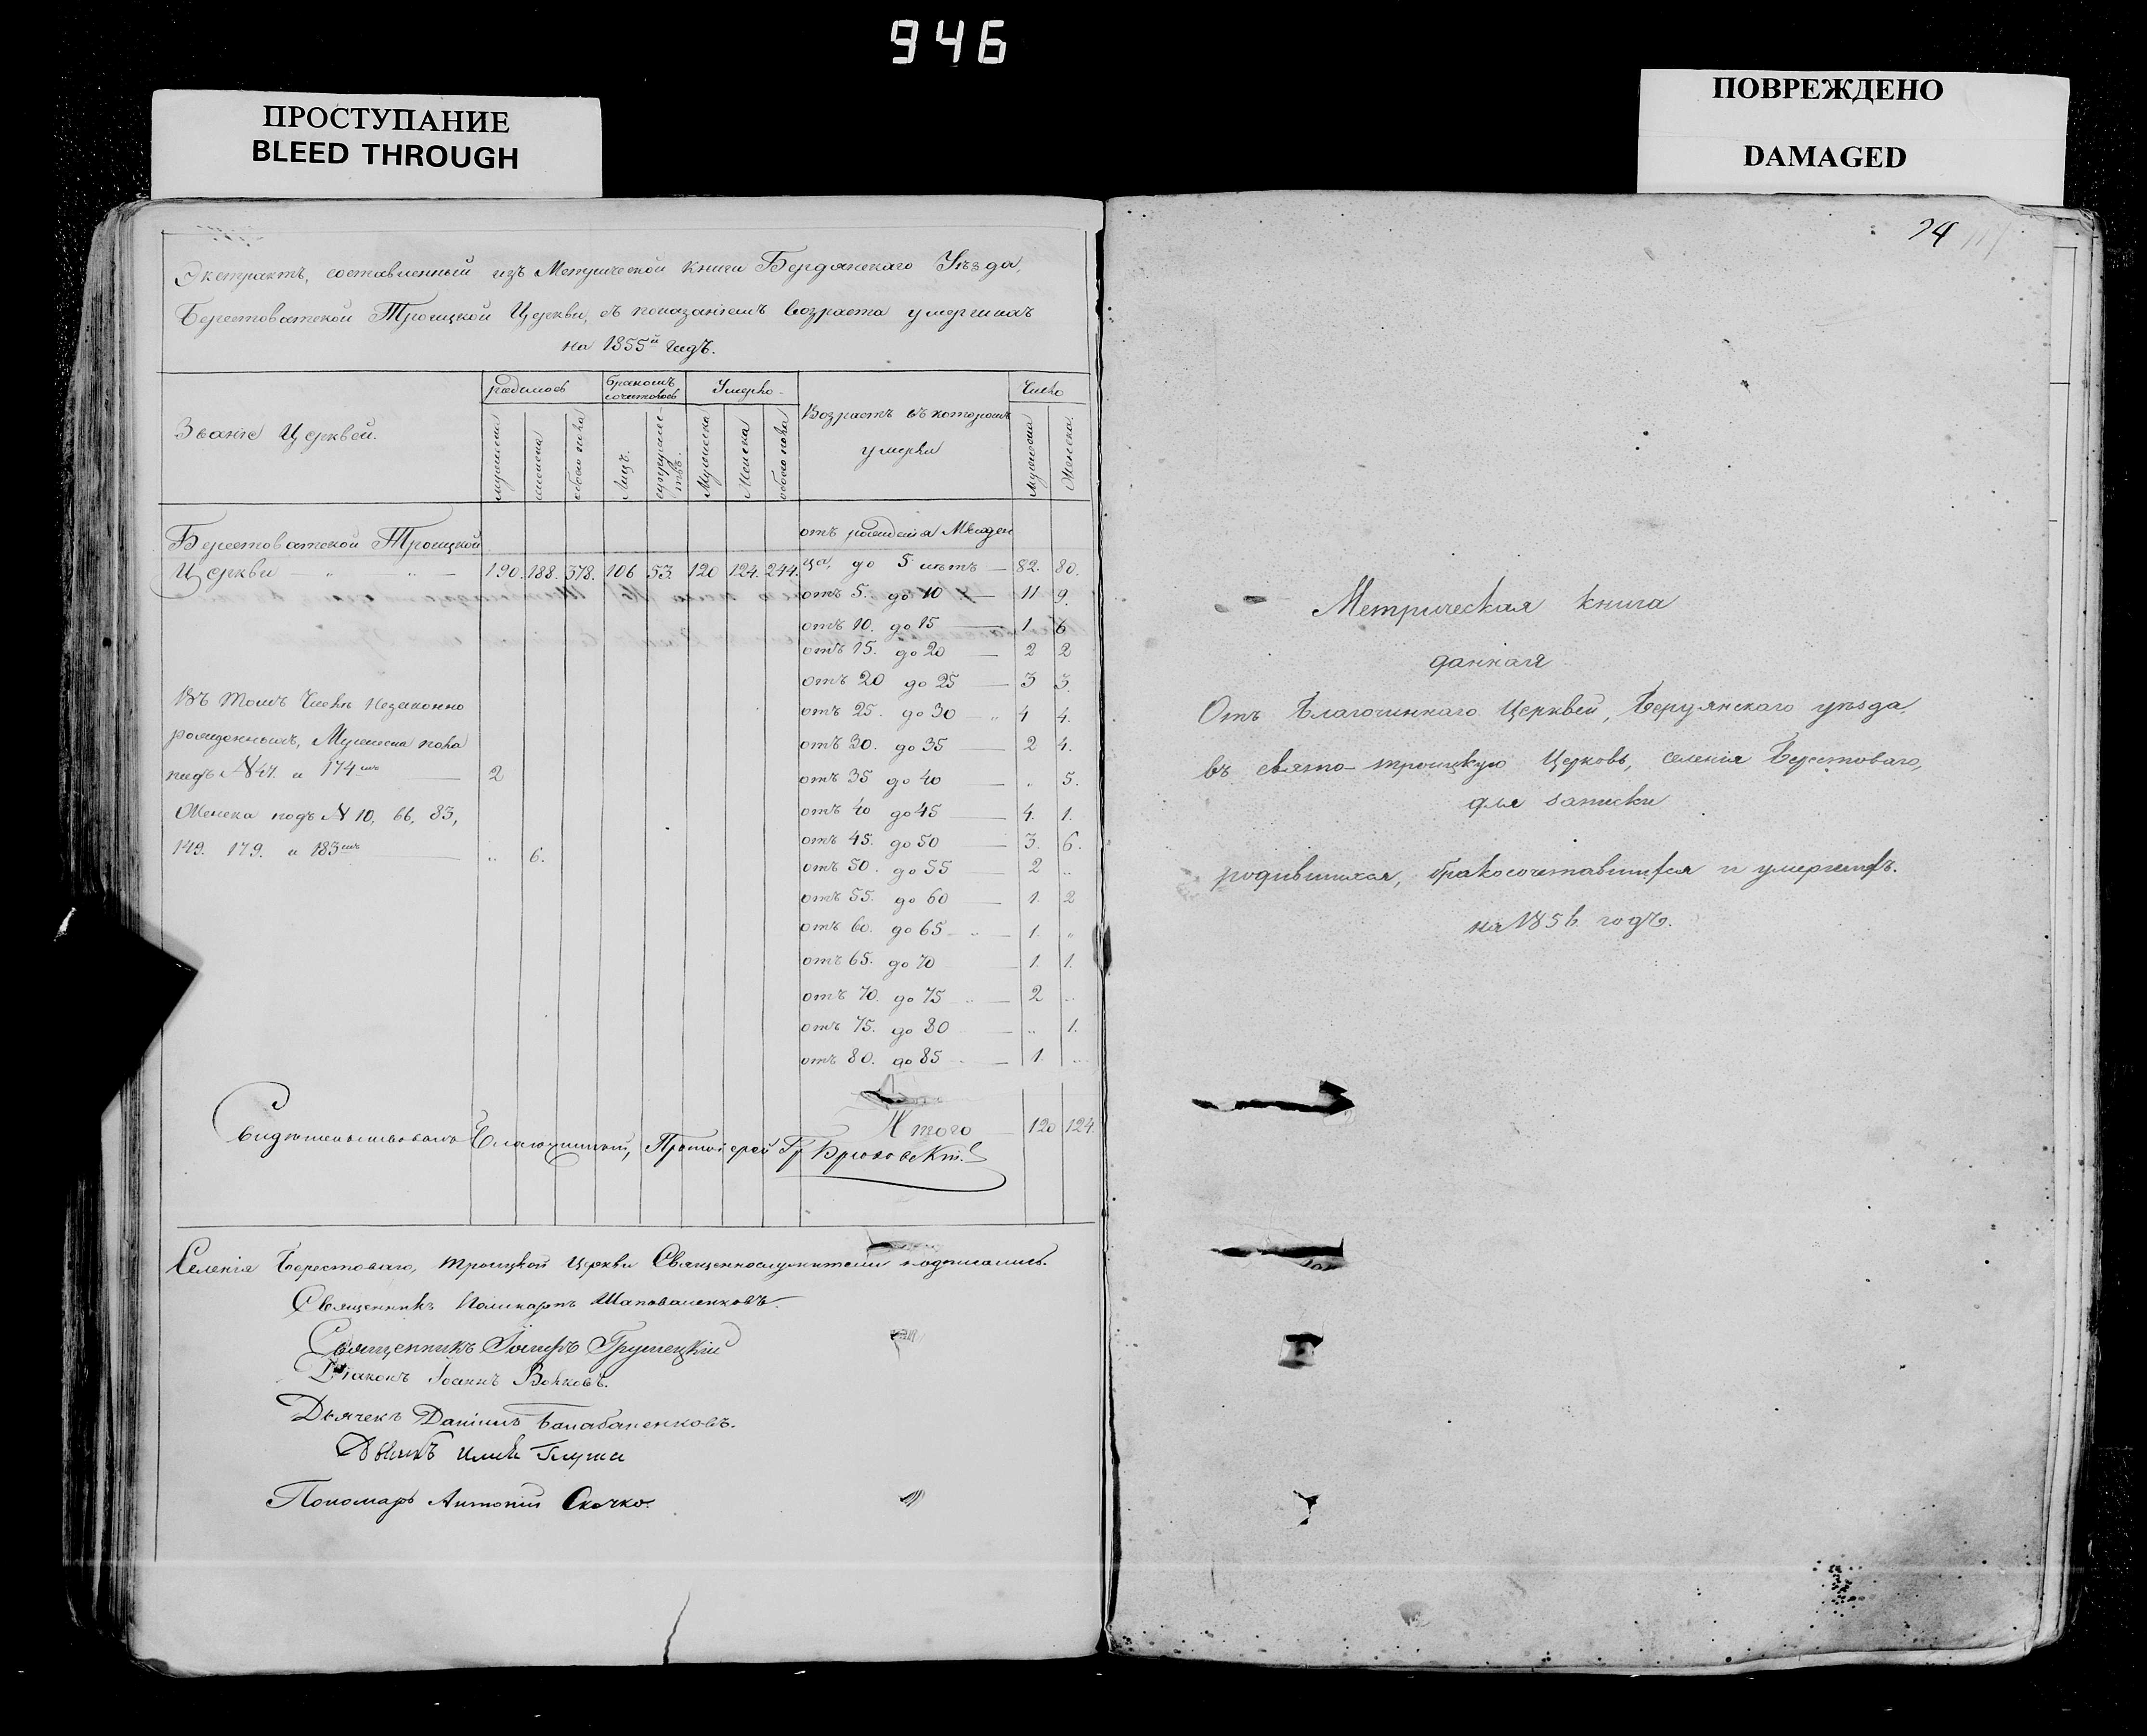 946
ПРОСТУПАНИЕ
BLEED THROUGH
ПОВРЕЖДЕНО
DAMAGED
Экстрактъ, составленный изъ Метрической книги Бердянскаго Уѣзда,
Берестоватской Троицкой Церкви, съ показаніемъ возраста умершихъ
на 1855й годъ.
Званіе Церквей.
родилось
бракомъ сочеталось
Умерло
Возрастъ въ которомъ умерли
Число
мужеска
женска
обоего пола
Лицъ.
супружествъ.
Мужеска
Женска
обоего пола
Мужеска
Женска.
Берестоватской Троицкой
Церкви 190. 188. 378. 106 53. 120 124. 244.
отъ рожденія Младен
ца, до 5 лѣтъ — 82. 80.
отъ 5. до 10 — 11 9.
отъ 10. до 15 — 1. 6
отъ 15. до 20 — 2 2
отъ 20 до 25 — 3 3.
отъ 25. до 30 „ 4 4.
отъ 30. до 35 — 2 4.
отъ 35 до 40 — „ 5.
отъ 40 до 45 — 4. 1.
отъ 45. до 50 — 3. 6.
отъ 50. до 55 — 2 „
отъ 55. до 60 — 1. 2
отъ 60. до 65 „ — 1. „
отъ 65. до 70 — 1. 1.
отъ 70. до 75 „ — 2 „
отъ 75. до 80 — „ 1.
отъ 80. до 85 — 1. „
Итого 120 124.
Въ томъ Числѣ Незаконно
рожденныхъ, Мужеска пола
подъ № 47. и 174мъ — 2
Женска подъ № 10, 66, 83,
149. 179. и 183мъ — „ 6.
Свидѣтельствовалъ Благочинный, Протоіерей Гр
Селенія Берестоваго, Троицкой Церкви Священнослужители подписались.
Священникъ Поликарпъ Шаповаленковъ.
Священникъ Іосифъ Грушецкій
Діаконъ Іоаннъ Волковъ.
Дьячекъ Даніилъ Балабаненковъ.
Пономарь Антоній Скочко.
24
Метрическая книга
данная
Отъ Благочиннаго Церквей, Бердянскаго уѣзда,
въ свято-троицкую Церковь, селенія Берестоваго,
для записки
родившихся, бракосочетавшихся и умершихъ.
на 1856 годъ.